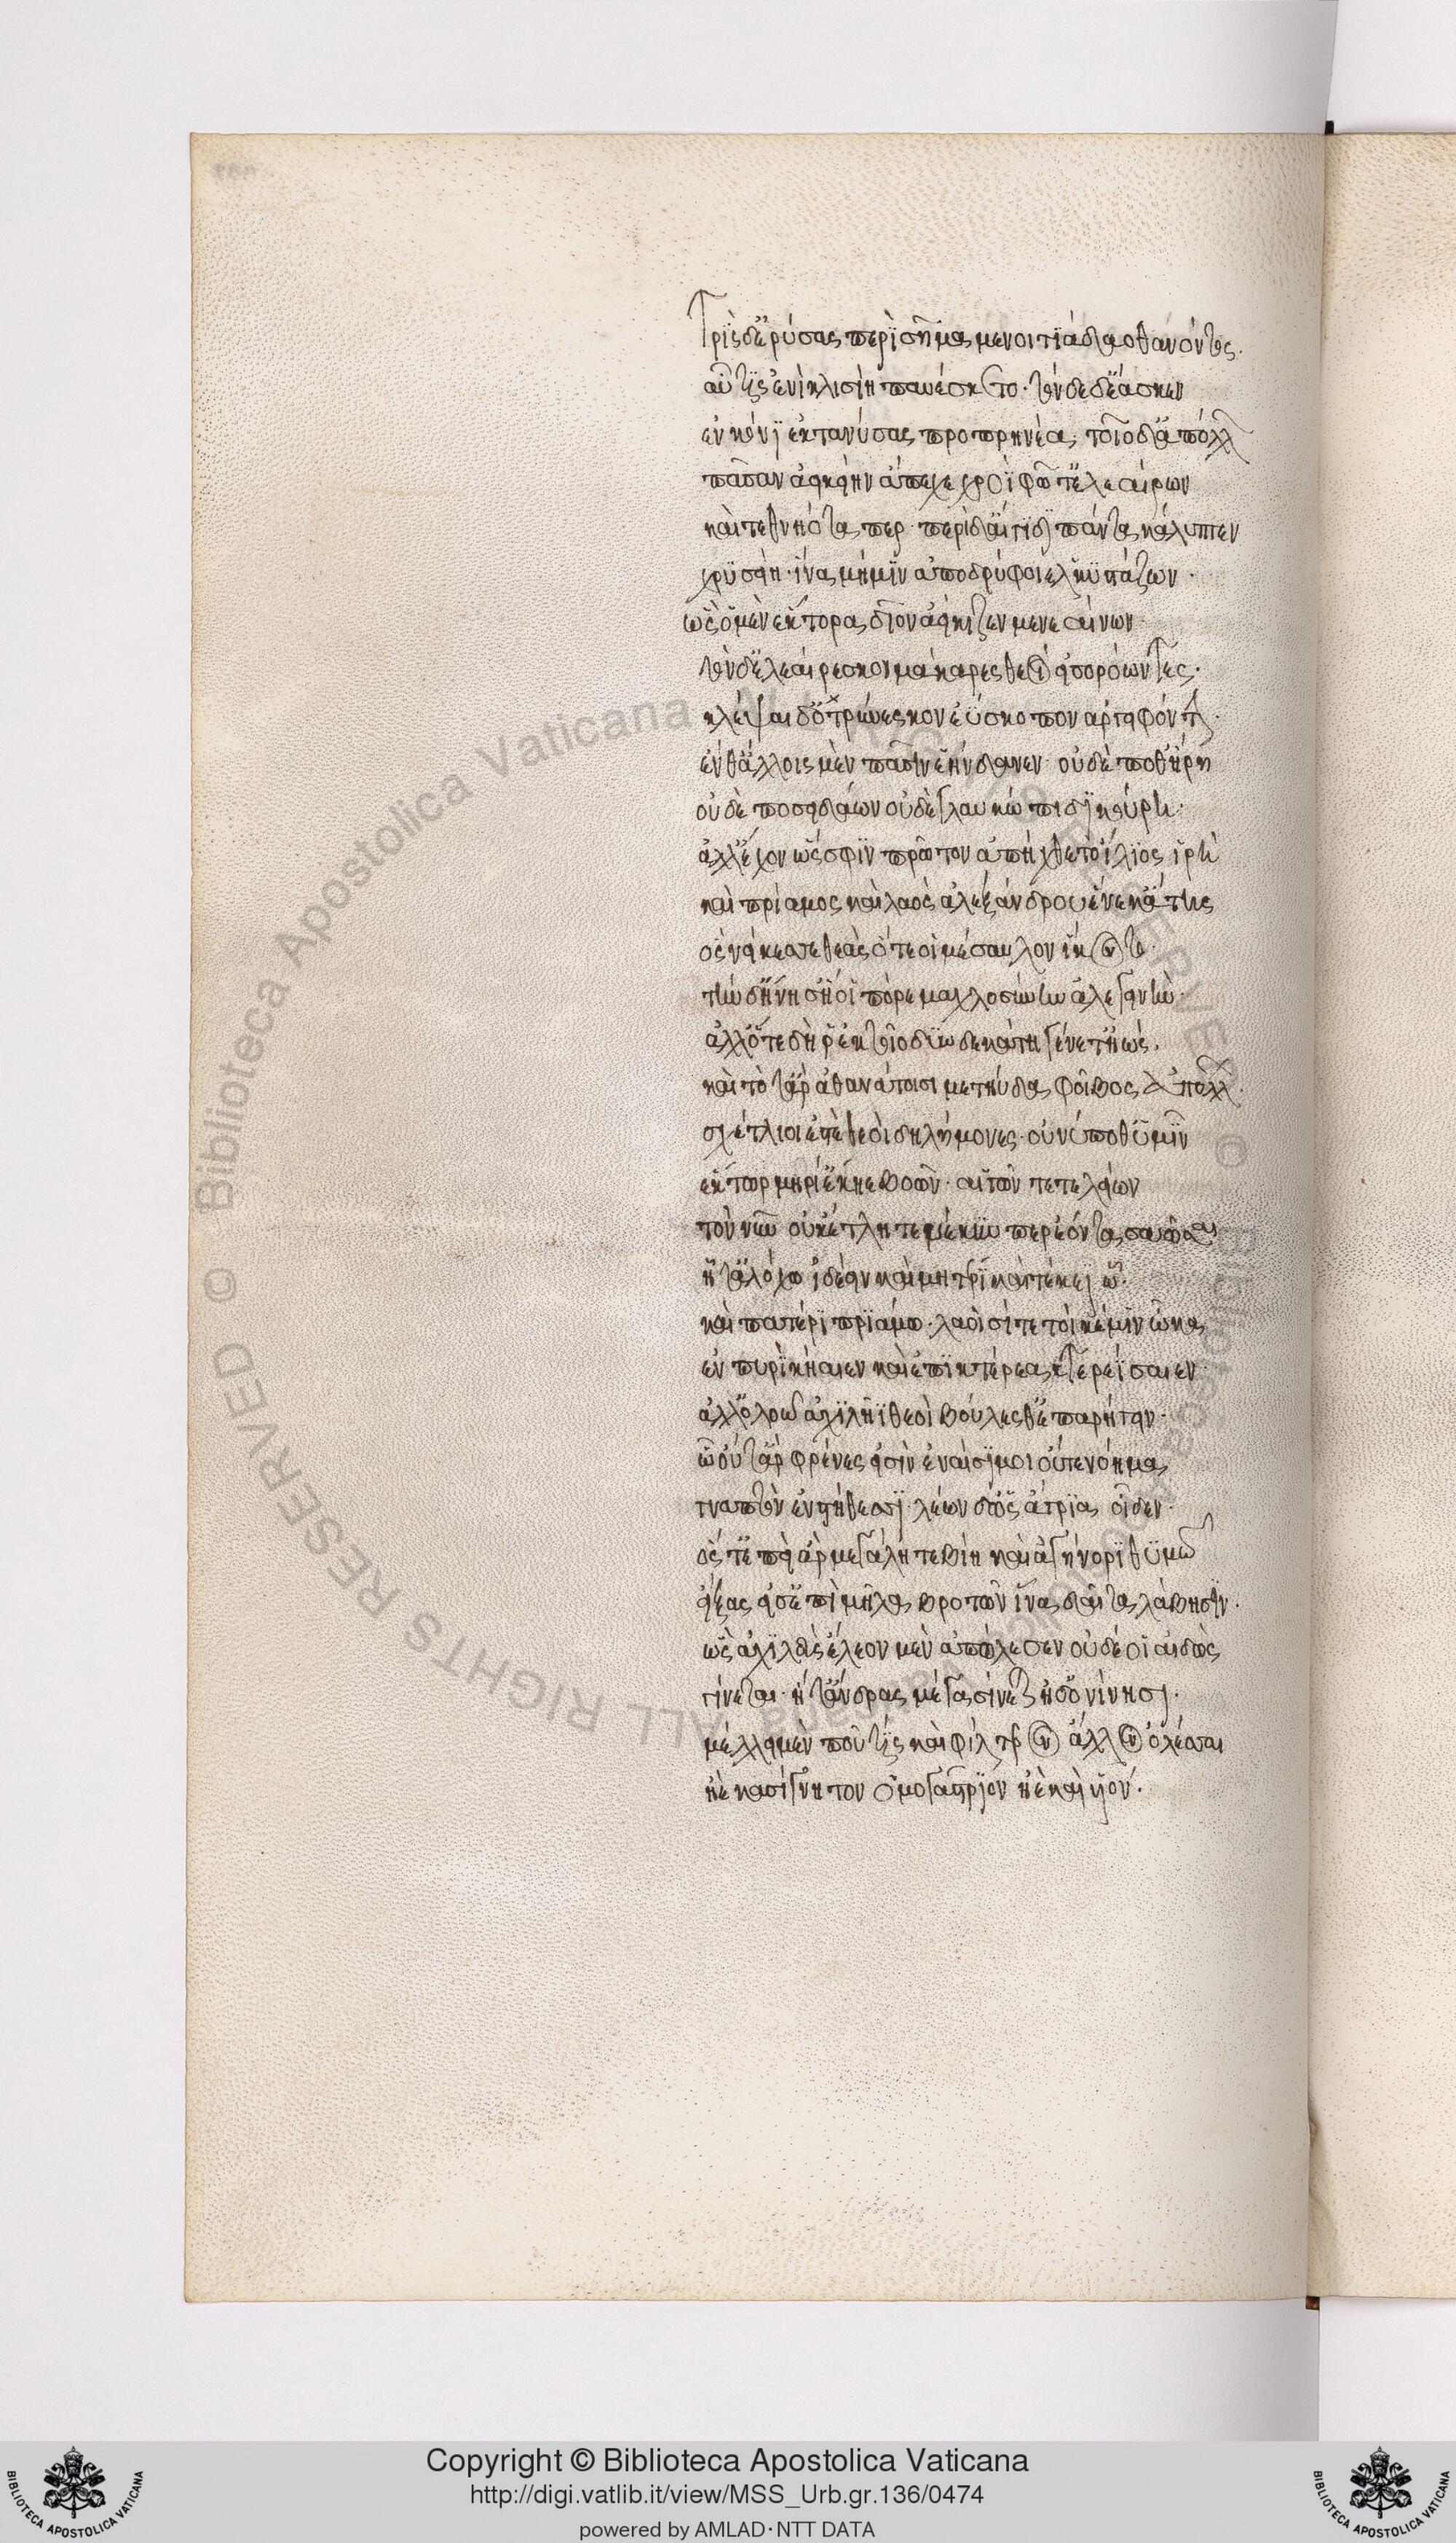 Τρὶς δ' ἐρύσας περὶ σῆμα μενοιτιάδαο θανόντος.
αὖτις ἐνὶ κλισίη παυέσκετο· τὸν δέ δ' ἔασκεν
ἐν κόνϊ ἐκτανύσας προπρηνέα, τοῖο δ' ἀπόλλων
πᾶσαν ἀεικείην ἄπεχε χροῒ φῶτ' ἐλεαίρων
καὶ τεθνηότα περ· περὶ δ' αἰγίδι πάντα κάλυπτεν
χρυσείη· ἵνα μή μιν ἀποδρύφοι ἑλκυστάζων·
ὣς ὁ μὲν ἕκτορα δῖον ἀείκιζεν μενεαίνων·
τὸν δ' ἐλεαίρεσκον μάκαρες θεοὶ εἰσορόωντες.
κλέψαι δ' ὀτρύνεσκον ἐΰσκοπον ἀργειφόντην.
ἔνθ' ἄλλοις μὲν πᾶσιν ἑήνδανεν· οὐδέ ποθ' ἥρη
οὐδὲ ποσειδάων οὐδὲ γλαυκώπιδι κούρη·
ἀλλ' ἔχον ὥς σφιν πρῶτον ἀπήχθετο ἴλιος ἱρὴ
καὶ πρίαμος καὶ λαὸς ἀλεξάνδρου ἕνεκ' ἄτης
ὃς νείκεσσε θεὰς ὅτε οἱ μέσαυλον ἵκοντο·
τὴν δ' ἤνησ' ἥ οἱ πόρε μαχλοσύνην ἀλεγεινήν·
ἀλλ' ὅτε δή ῥ' ἐκ τοῖο δυωδεκάτη γένετ' ἠώς.
καὶ τότ' ἄρ' ἀθανάτοισι μετηύδα φοῖβος ἀπόλλων.
σχέτλιοί ἐστε θεοὶ δηλήμονες· οὔ νύ ποθ' ὑμῖν
ἕκτωρ μηρί' ἔκηε βοῶν· αἰγῶν τε τελείων
τὸν νῦν οὐκ ἔτλητε νέκυν περ ἐόντα σαῶσαι
ᾗ τ' ἀλόχω ἰδέειν καὶ μητρὶ καὶ τέκεϊ ᾧ.
καὶ πατέρι πριάμω· λαοῖσί τε τοί κέ μιν ὦκα
ἐν πυρὶ κήαιεν καὶ ἐπὶ κτέρεα κτερείσαιεν·
ἀλλ' ὀλοῶ ἀχιλῆϊ θεοὶ βούλεσθ' ἐπαρήγειν·
ᾧ οὔτ' ἂρ φρένες εἰσὶν ἐναίσιμοι οὔτε νόημα
γναπτὸν ἐνὶ στήθεσσι· λέων δ' ὣς ἄγρια οἶδεν·
ὅς τ' ἐπεὶ ἂρ μεγάλη τε βίη καὶ ἀγήνορι θυμῶ
εἴξας εἶσ' ἐπὶ μῆλα βροτῶν ἵνα δαῖτα λάβησιν·
ὣς ἀχιλεὺς ἔλεον μὲν ἀπώλεσεν οὐδέ οἱ αἰδὼς
γίνεται· ἥ τ' ἄνδρας μέγα σίνεται ἠδ' ὀνίνησι.
μέλλει μέν πού τις καὶ φίλτερον ἄλλον ὀλέσσαι
ἠὲ κασίγνητον ὁμογάστριον ἠὲ καὶ υἱόν.
Copyright © Biblioteca Apostolica Vaticana
http://digi.vatlib.it/view/MSS_Urb.gr.136/0474
powered by AMLAD·NTT DATA